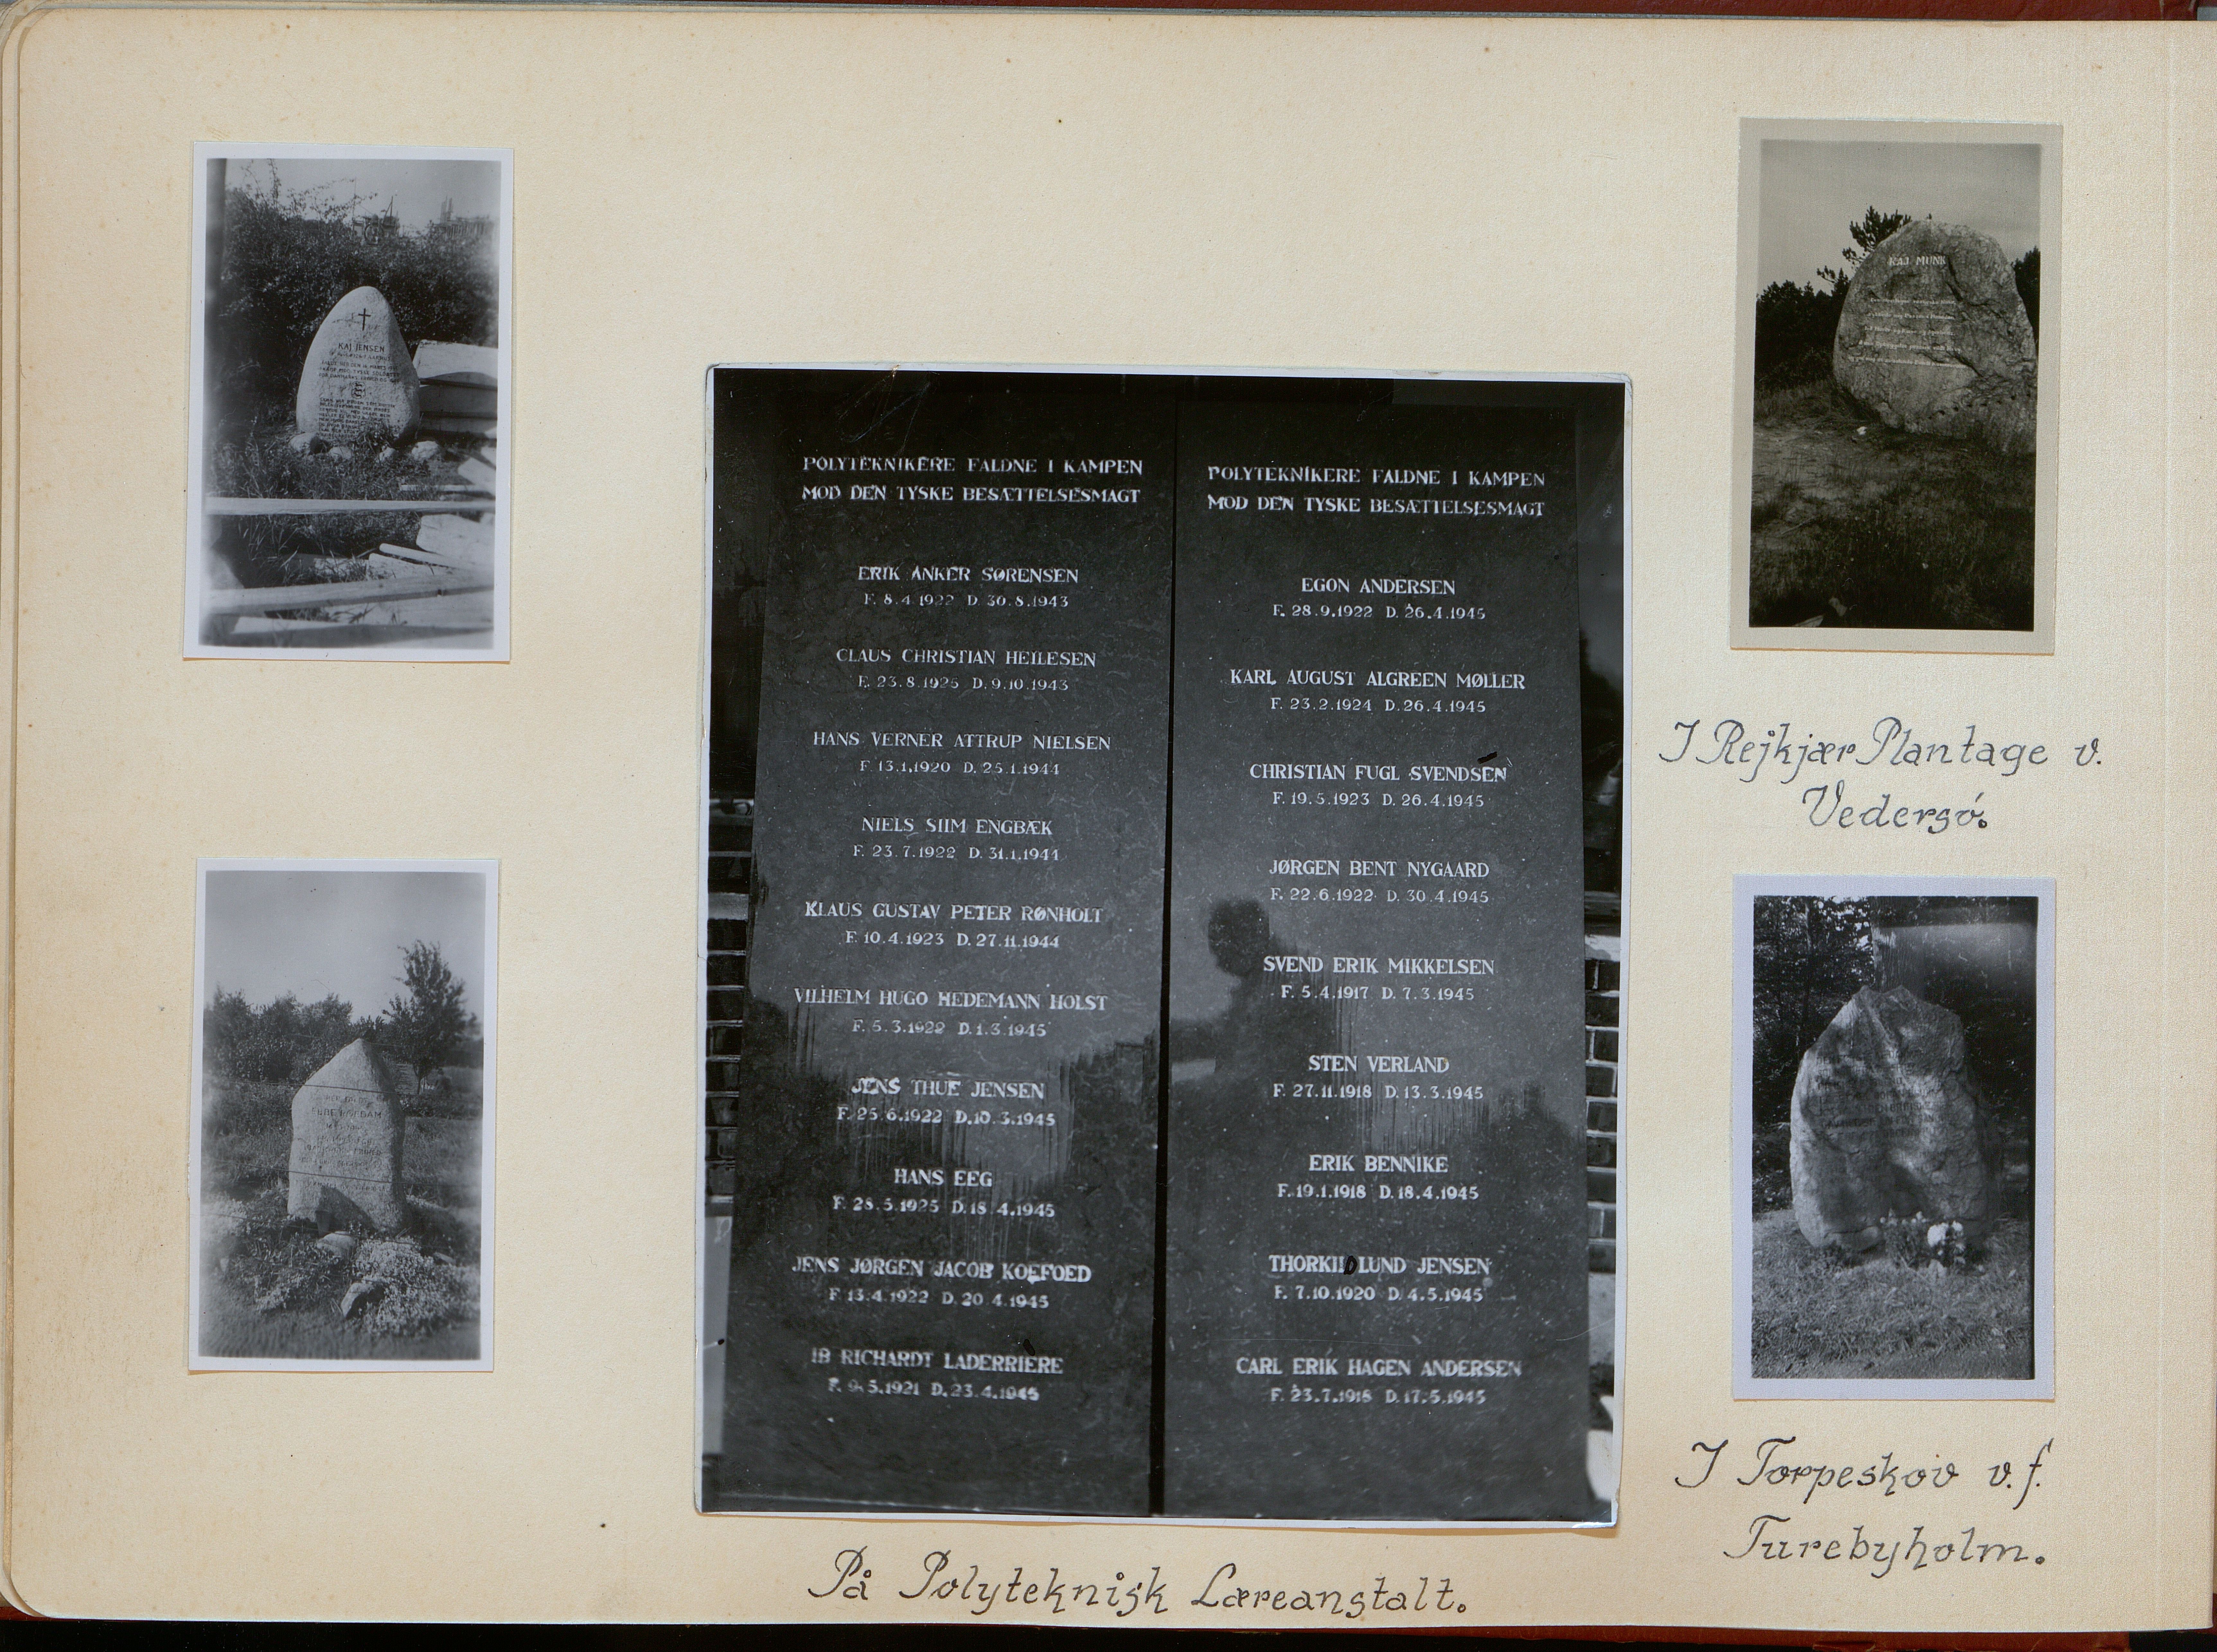 KAJ JENSEN
POLYTEKNIKERE FALDNE I KAMPEN
MOD DEN TYSKE BESÆTTELSESMAGT
ERIK ANKER SØRENSEN
F. 8.4.1922 D. 30.8.1943
CLAUS CHRISTIAN HEILESEN
F. 23.8.1925 D. 9.10.1943
HANS VERNER ATTRUP NIELSEN
F. 13.1.1920 D. 25.1.1944
NIELS SIIM ENGBÆK
F. 23.7.1922 D. 31.1.1944
KLAUS GUSTAV PETER RØNHOLT
F. 10.4.1923 D. 27.11.1944
VILHELM HUGO HEDEMANN HOLST
F. 5.3.1922 D. 1.3.1945
JENS THUE JENSEN
F. 25.6.1922 D. 10.3.1945
HANS EEG
F. 28.5.1925 D. 18.4.1945
JENS JØRGEN JACOB KOEFOED
F. 13.4.1922 D. 20.4.1945
IB RICHARDT LADERRIERE
F. 9.5.1921 D. 23.4.1945
POLYTEKNIKERE FALDNE I KAMPEN
MOD DEN TYSKE BESÆTTELSESMAGT
EGON ANDERSEN
F. 28.9.1922 D. 26.4.1945
KARL AUGUST ALGREEN MØLLER
F. 23.2.1924 D. 26.4.1945
CHRISTIAN FUGL SVENDSEN
F. 19.5.1923 D. 26.4.1945
JØRGEN BENT NYGAARD
F. 22.6.1922 D. 30.4.1945
SVEND ERIK MIKKELSEN
F. 5.4.1917 D. 7.3.1945
STEN VERLAND
F. 27.11.1918 D. 13.3.1945
ERIK BENNIKE
F. 19.1.1918 D. 18.4.1945
THORKILD LUND JENSEN
F. 7.10.1920 D. 4.5.1945
CARL ERIK HAGEN ANDERSEN
F. 23.7.1918 D. 17.5.1945
På Polyteknisk Læreanstalt.
KAJ MUNK
I Rejkjær Plantage v.
Vedersø.
I Torpeskov v.f.
Turebyholm.